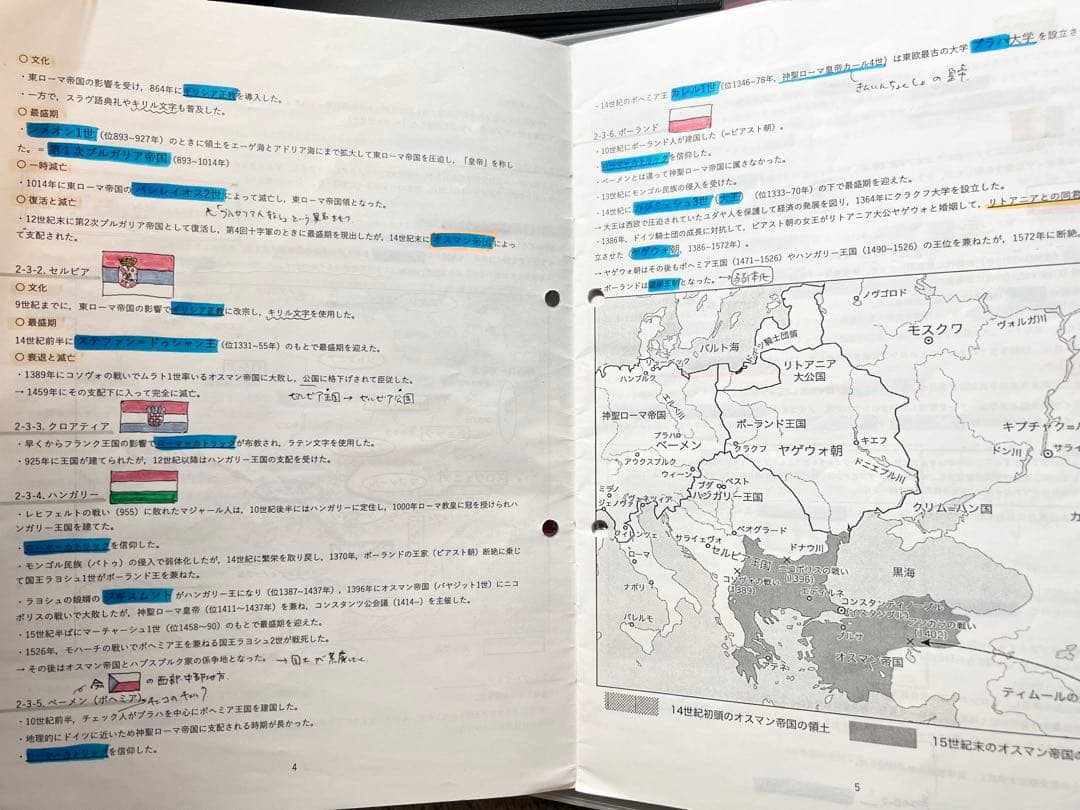 ○ 文化
・東ローマ帝国の影響を受け，864年にギリシア正教を導入した。
・一方で，スラヴ語典礼やキリル文字も普及した。
○ 最盛期
・シメオン1世（位893~927年）のときに領土をエーゲ海とアドリア海にまで拡大して東ローマ帝国を圧迫し，「皇帝」を称し
た。＝第1次ブルガリア帝国（893~1014年）
○ 一時滅亡
・1014年に東ローマ帝国のバシレイオス2世によって滅亡し，東ローマ帝国領となった。
○ 復活と滅亡
・12世紀末に第2次ブルガリア帝国として復活し，第4回十字軍のときに最盛期を現出したが，14世紀末にオスマン帝国によっ
て支配された。
2-3-2. セルビア
○ 文化
9世紀までに，東ローマ帝国の影響でギリシア正教に改宗し，キリル文字を使用した。
○ 最盛期
14世紀前半にステファン＝ドゥシャン王（位1331~55年）のもとで最盛期を迎えた。
○ 衰退と滅亡
・1389年にコソヴォの戦いでムラト1世率いるオスマン帝国に大敗し，公国に格下げされて臣従した。
→ 1459年にその支配下に入って完全に滅亡。
セルビア王国 → セルビア公国
2-3-3. クロアティア
・早くからフランク王国の影響でローマ＝カトリックが布教され，ラテン文字を使用した。
・925年に王国が建てられたが，12世紀以降はハンガリー王国の支配を受けた。
2-3-4. ハンガリー
・レヒフェルトの戦い（955）に敗れたマジャール人は，10世紀後半にはハンガリーに定住し，1000年ローマ教皇に冠を授けられハ
ンガリー王国を建てた。
・ローマ＝カトリックを信仰した。
・モンゴル民族（バトゥ）の侵入で弱体化したが，14世紀に繁栄を取り戻し，1370年，ポーランドの王家（ピアスト朝）断絶に乗じ
て国王ラヨシュ1世がポーランド王を兼ねた。
・ラヨシュの娘婿のジギスムントがハンガリー王になり（位1387~1437年），1396年にオスマン帝国（バヤジット1世）にニコ
ポリスの戦いで大敗したが，神聖ローマ皇帝（位1411~1437年）を兼ね，コンスタンツ公会議（1414~）を主催した。
・15世紀半ばにマーチャーシュ1世（位1458~90）のもとで最盛期を迎えた。
・1526年，モハーチの戦いでボヘミア王を兼ねる国王ラヨシュ2世が戦死した。
→ その後はオスマン帝国とハプスブルク家の係争地となった。
今 の西部・中部地方.
2-3-5. ベーメン（ボヘミア）
・10世紀前半，チェック人がプラハを中心にボヘミア王国を建国した。
・地理的にドイツに近いため神聖ローマ帝国に支配される時期が長かった。
・ローマ＝カトリックを信仰した。
4
・14世紀のボヘミア王カレル1世（位1346~78年，神聖ローマ皇帝カール4世）は東欧最古の大学プラハ大学を設立さ
2-3-6. ポーランド
・10世紀にポーランド人が建国した（＝ピアスト朝）。
・ローマ＝カトリックを信仰した。
・ベーメンとは違って神聖ローマ帝国に属さなかった。
・13世紀にモンゴル民族の侵入を受けた。
・14世紀にカジミェシュ3世（大王）（位1333~70年）の下で最盛期を迎えた。
→ 大王は西欧で圧迫されていたユダヤ人を保護して経済の発展を図り，1364年にクラクフ大学を設立した。
・1386年，ドイツ騎士団の成長に対抗して，ピアスト朝の女王がリトアニア大公ヤゲウォと婚姻して，リトアニアとの同君
立させた（ヤゲウォ朝，1386~1572年）。
→ ヤゲウォ朝はその後もボヘミア王国（1471~1526）やハンガリー王国（1490~1526）の王位を兼ねたが，1572年に断絶。
・ポーランドは選挙王制となった。→ 弱体化
ノヴゴロド
モスクワ
ヴォルガ川
バルト海
ドイツ騎士団領
リューベック
リトアニア
大公国
ハンブルク
エルベ川
神聖ローマ帝国
ポーランド王国
キプチャク＝ハ
プラハ
ベーメン
クラクフ
ヤゲウォ朝
キエフ
ドン川
サライ
アウクスブルク
ウィーン
ドニエプル川
ミラノ
ブダ
ペスト
ジェノヴァ
ヴェネツィア
ハンガリー王国
クリム＝ハン国
フィレンツェ
ベオグラード
サライェヴォ
ローマ
セルビア王国
ドナウ川
ニコポリスの戦い
(1396)
黒海
コソヴォの戦い
(1389)
ナポリ
エディルネ
コンスタンティノープル
(イスタンブル)
アンカラの戦い
(1402)
パレルモ
ブルサ
アテネ
オスマン帝国
ティムールの
14世紀初頭のオスマン帝国の領土
15世紀末のオスマン帝国の
5